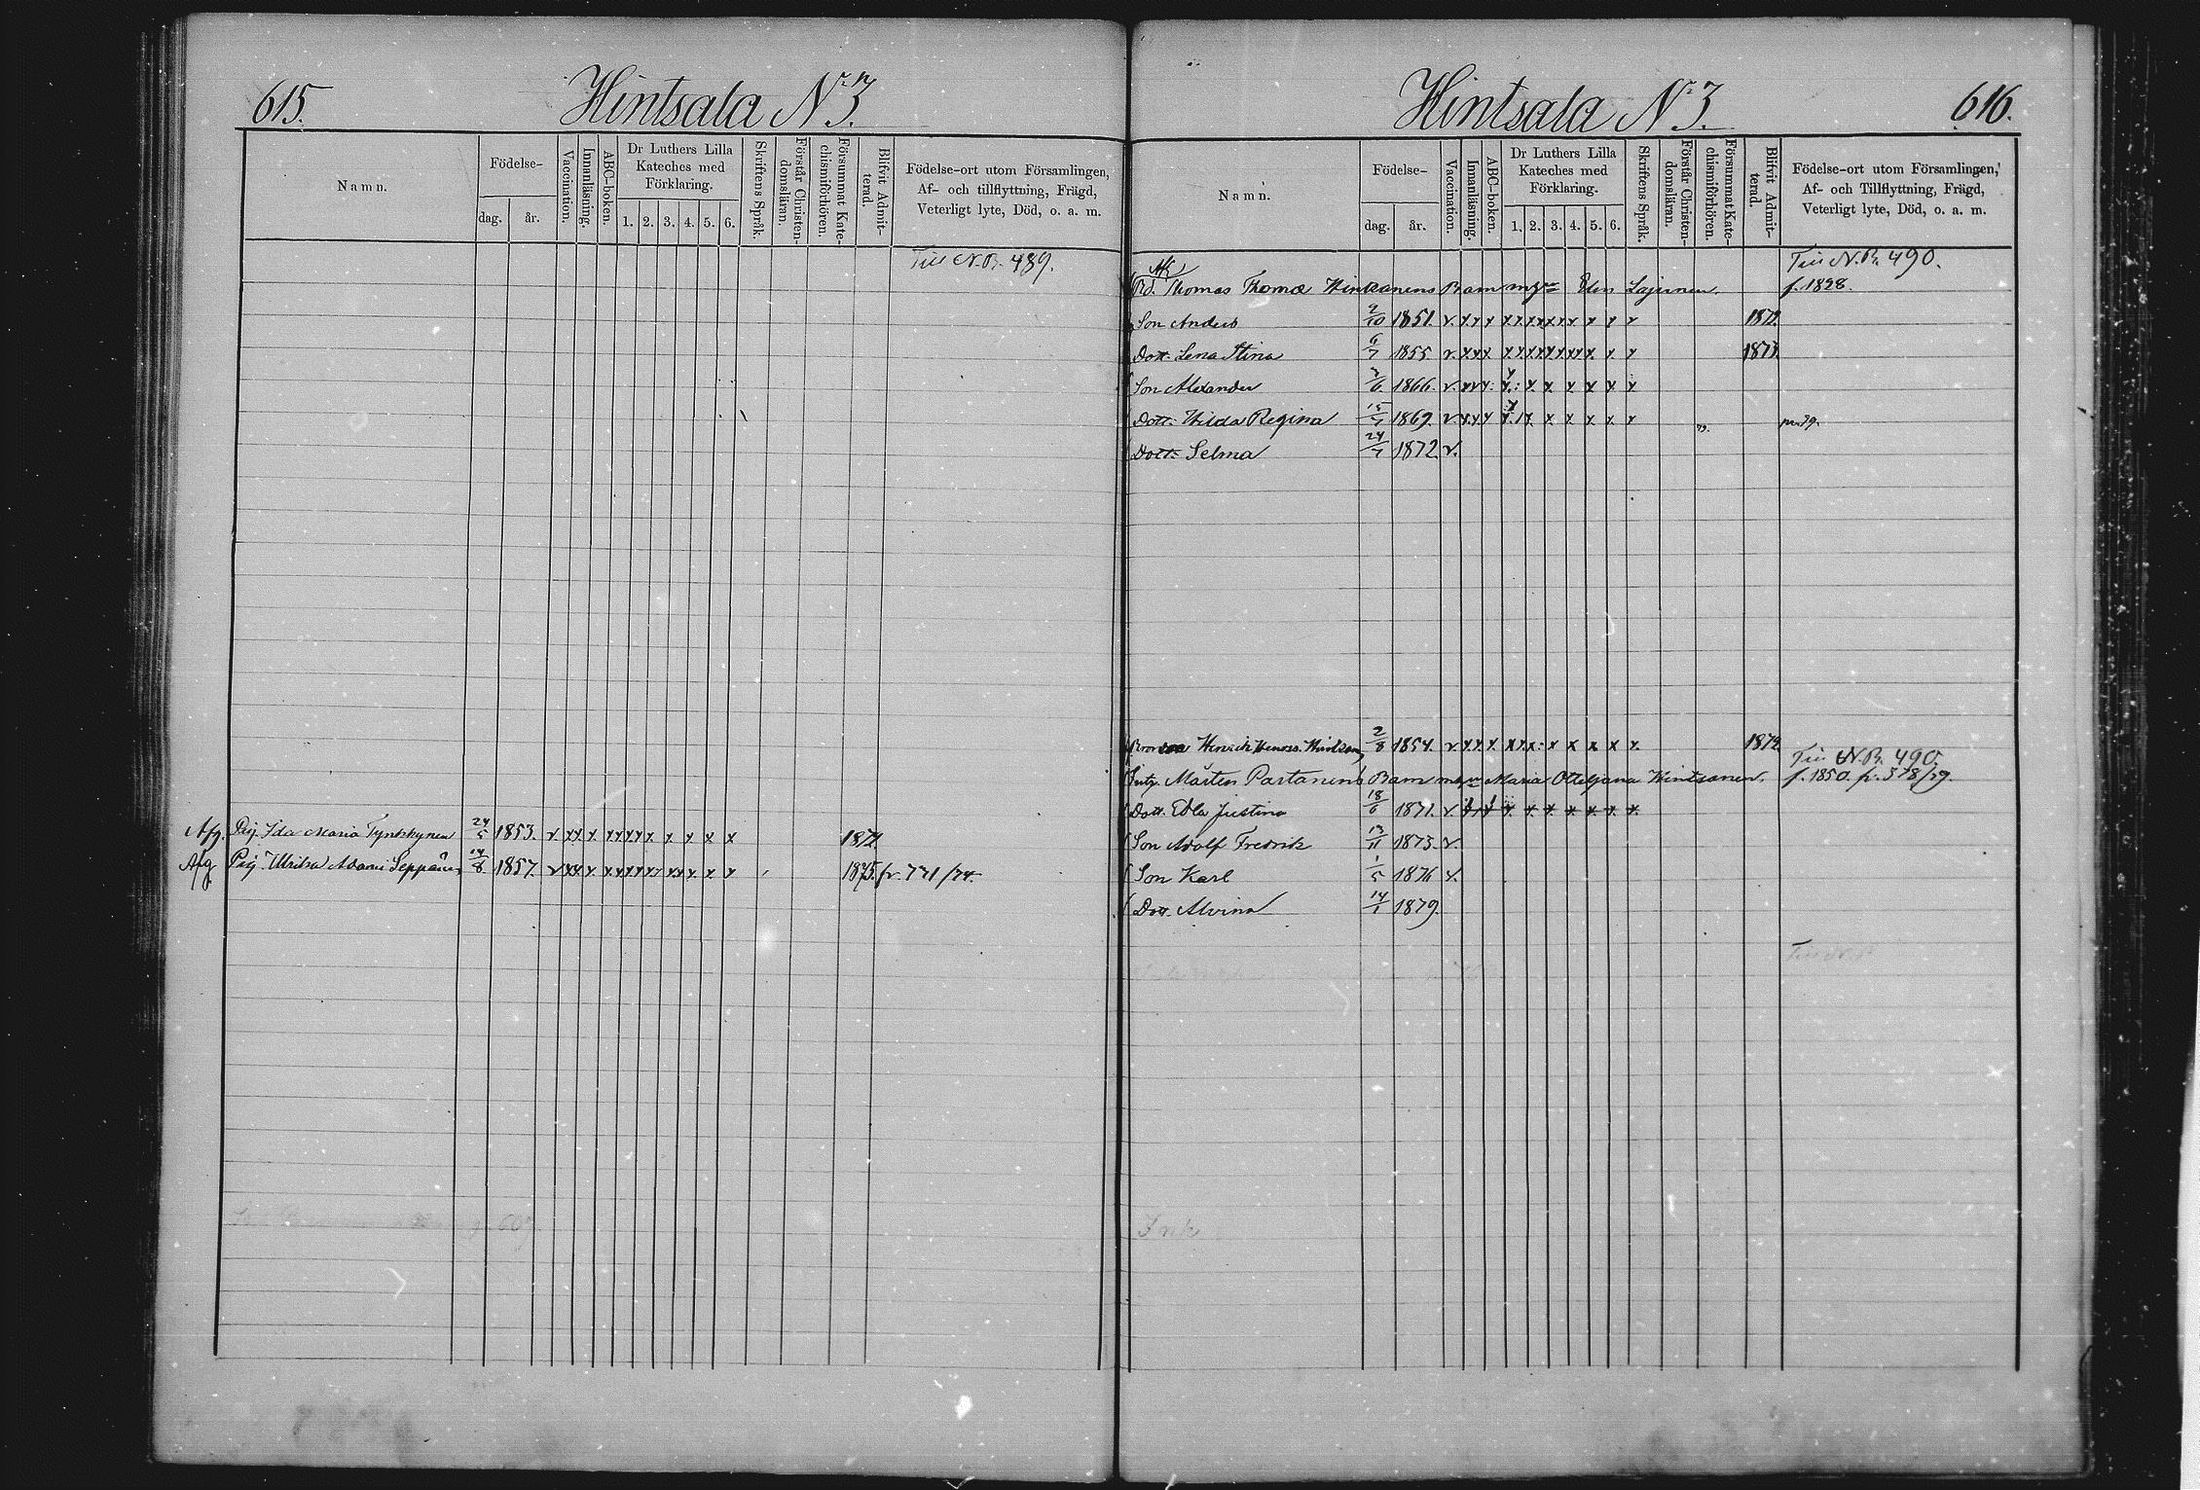 615.
Hintsala N:3.
Namn.
Födelse-
dag.
år.
Vaccination.
Innanläsning.
ABC-boken.
Dr Luthers Lilla
Kateches med
Förklaring.
1. 2. 3. 4. 5. 6.
Skriftens Språk.
Förstår Christen-
domsläran.
Försummat Kate-
chismiförhören.
Blifvit Admit-
terad.
Födelse-ort utom Församlingen,
Af- och tillflyttning, Frägd,
Veterligt lyte, Död, o. a. m.
Till N.B. 489.
Afg. Pig. Ida Maria Tynkkynen 24/5 1853. v x x x x x x x x x x x x
Afg Pig. Ulrika Adami 14/8 1857. v x x x x x x x x x x x x 1875. fr 771/74.
616.
Hintsala N:3.
Namn.
Födelse-
dag.
år.
Vaccination.
Innanläsning.
ABC-boken.
Dr Luthers Lilla
Kateches med
Förklaring.
1. 2. 3. 4. 5. 6.
Skriftens Språk.
Förstår Christen-
domsläran.
Försummat Kate-
chismiförhören.
Blifvit Admit-
terad.
Födelse-ort utom Församlingen,
Af- och Tillflyttning, Frägd,
Veterligt lyte, Död, o. a. m.
Till N.B. 490.
Thomas Thomæ Hintsanens Barn m
f. 1828.
Son Anders 1851. v. x x x x x x x x x x x x
Dott. Lena Stina 6/7 1855 v. x x x x x x x x x x x x 1873.
Son Alexander 1866. v. x x x x x x x x x x
Dott. Hilda Regina 1869. v x x x x x x x x x x
Dott. Selma 1872. v.
Hinrich 2/8 1854. v x x x x x x x x x x x
Till N.B. 490.
Mårten Partanens Barn m Maria Hintsanen. f. 1850. fr. 378/79.
Dott. Edla Justina 18/6 1871. v
Son Adolf Fredrik 13/11 1873. v.
Son Karl 1/5 1876 v.
Dott. Alvina 14/1 1879.